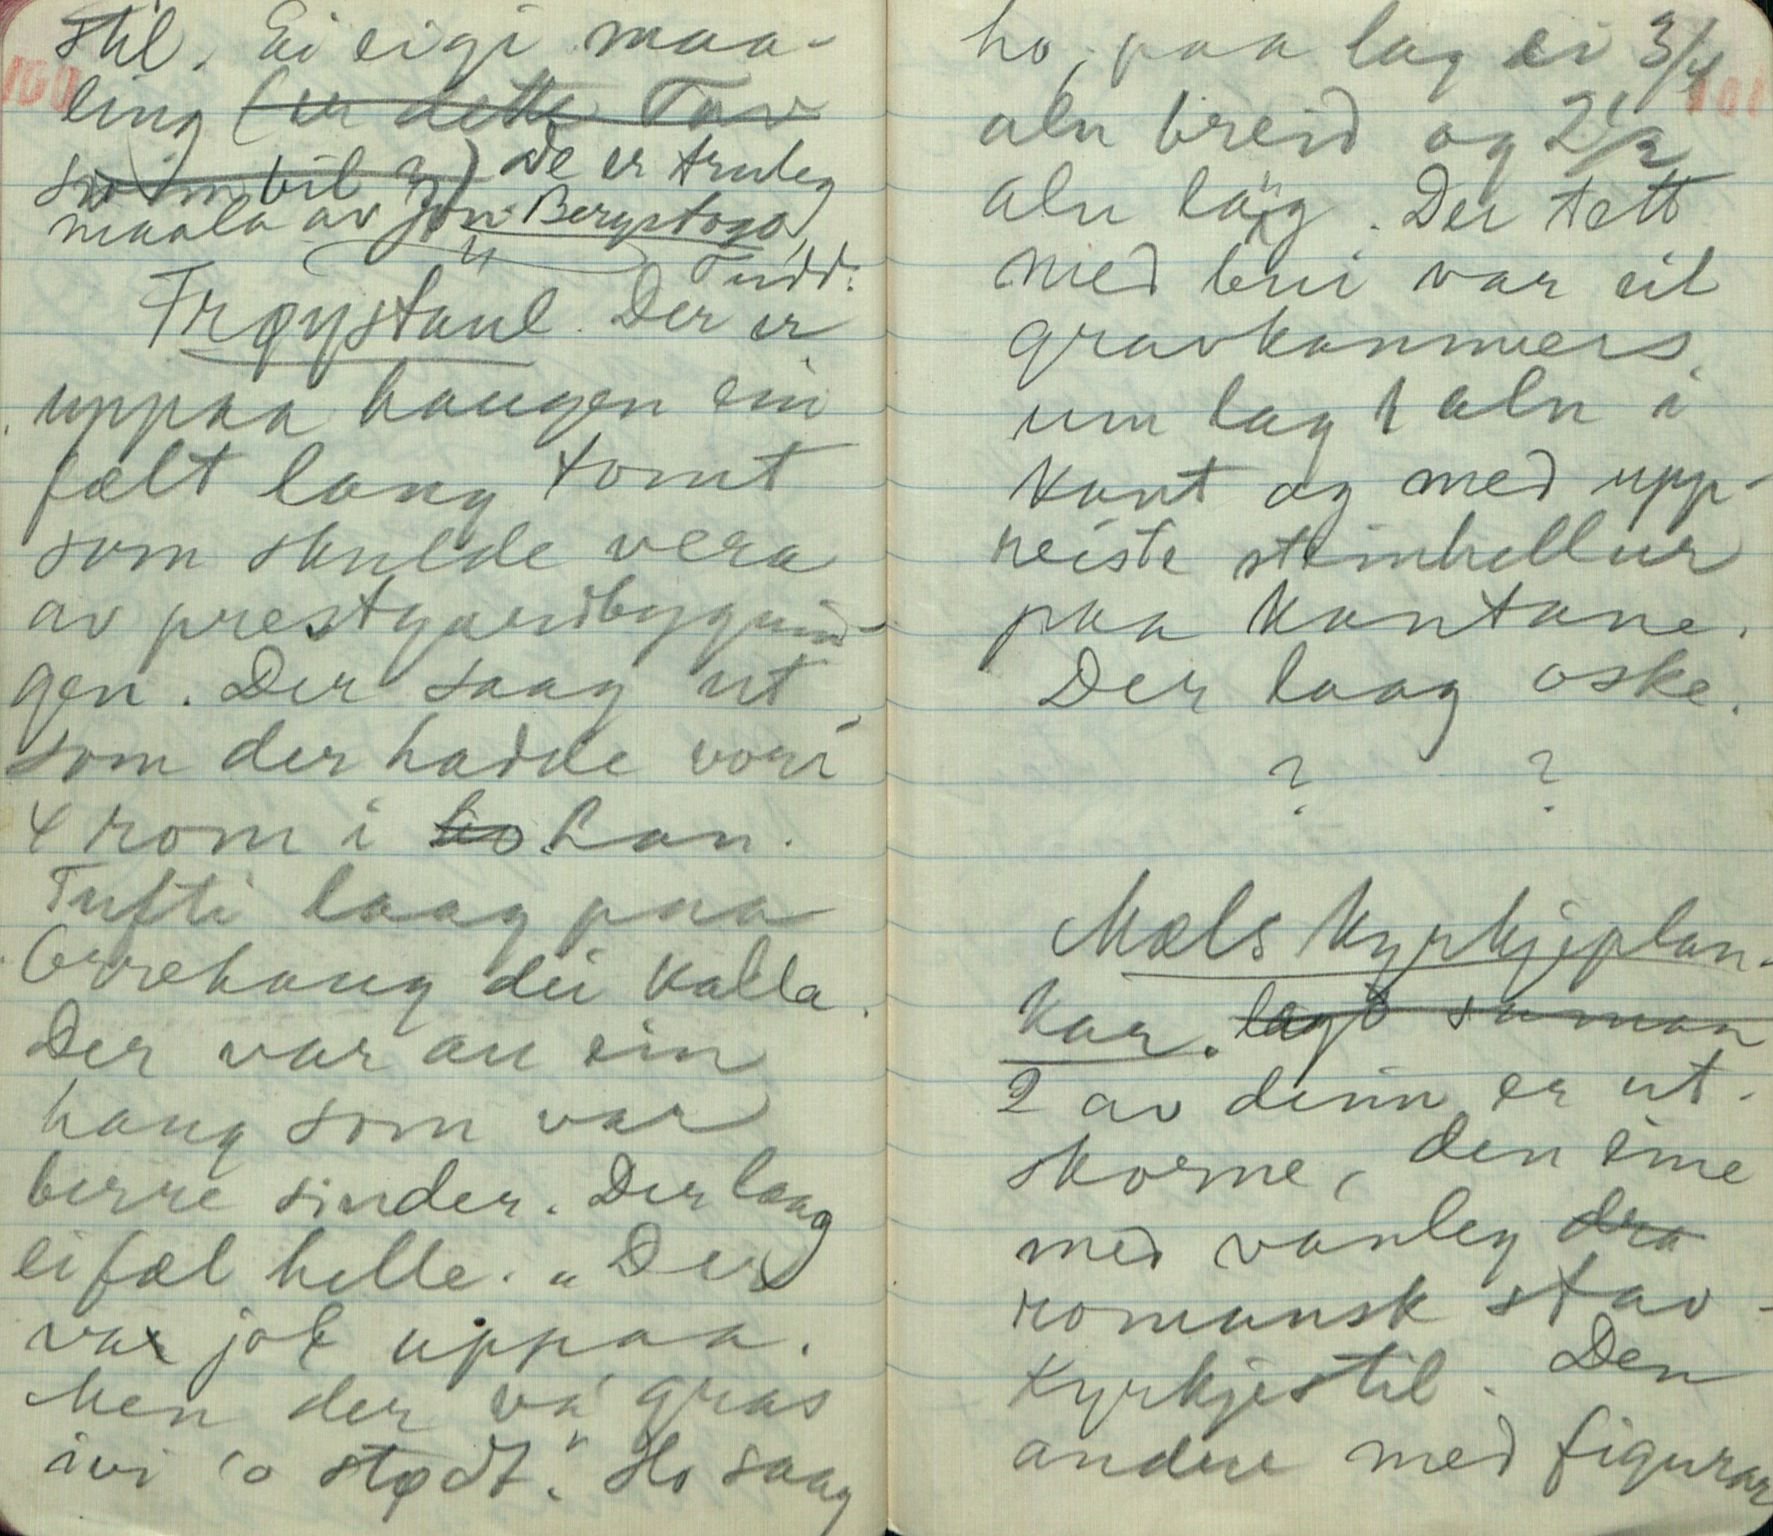 160
stil. Ei eigi maa-
ling (er dette Tav
som bil ?) De er truleg
maala av Jon Bergstogo,
Tudd:
Frøystaul. Der er
uppaa haugen ein
fælt lang tomt
som skulde vera
av prestgardbygnin-
gen. Der saag ut
som der hadde vori
4 rom i ho han.
Tufti laag paa
Orrehaug dei kalla.
Der var au ein
haug som var
berre sinder. Der laag
ei fæl helle. „Der
var jol uppaa.
Men der va gras
ivi so stødt." Ho saag
101
ho, paa lag ei 3/4
aln breid og 2 1/2
aln låg. Der tett
med bui var eit
gravkammers,
um lag 1 aln i
kant og med upp-
reiste steinhellur
paa kantane.
Der laag oske.
? ?
Mæls kyrkjeplan-
kar. lagt saman
2 av deim er ut-
skorne, den eine
med vanleg dra
romansk stav-
kyrkjestil. Den
andre med figurar